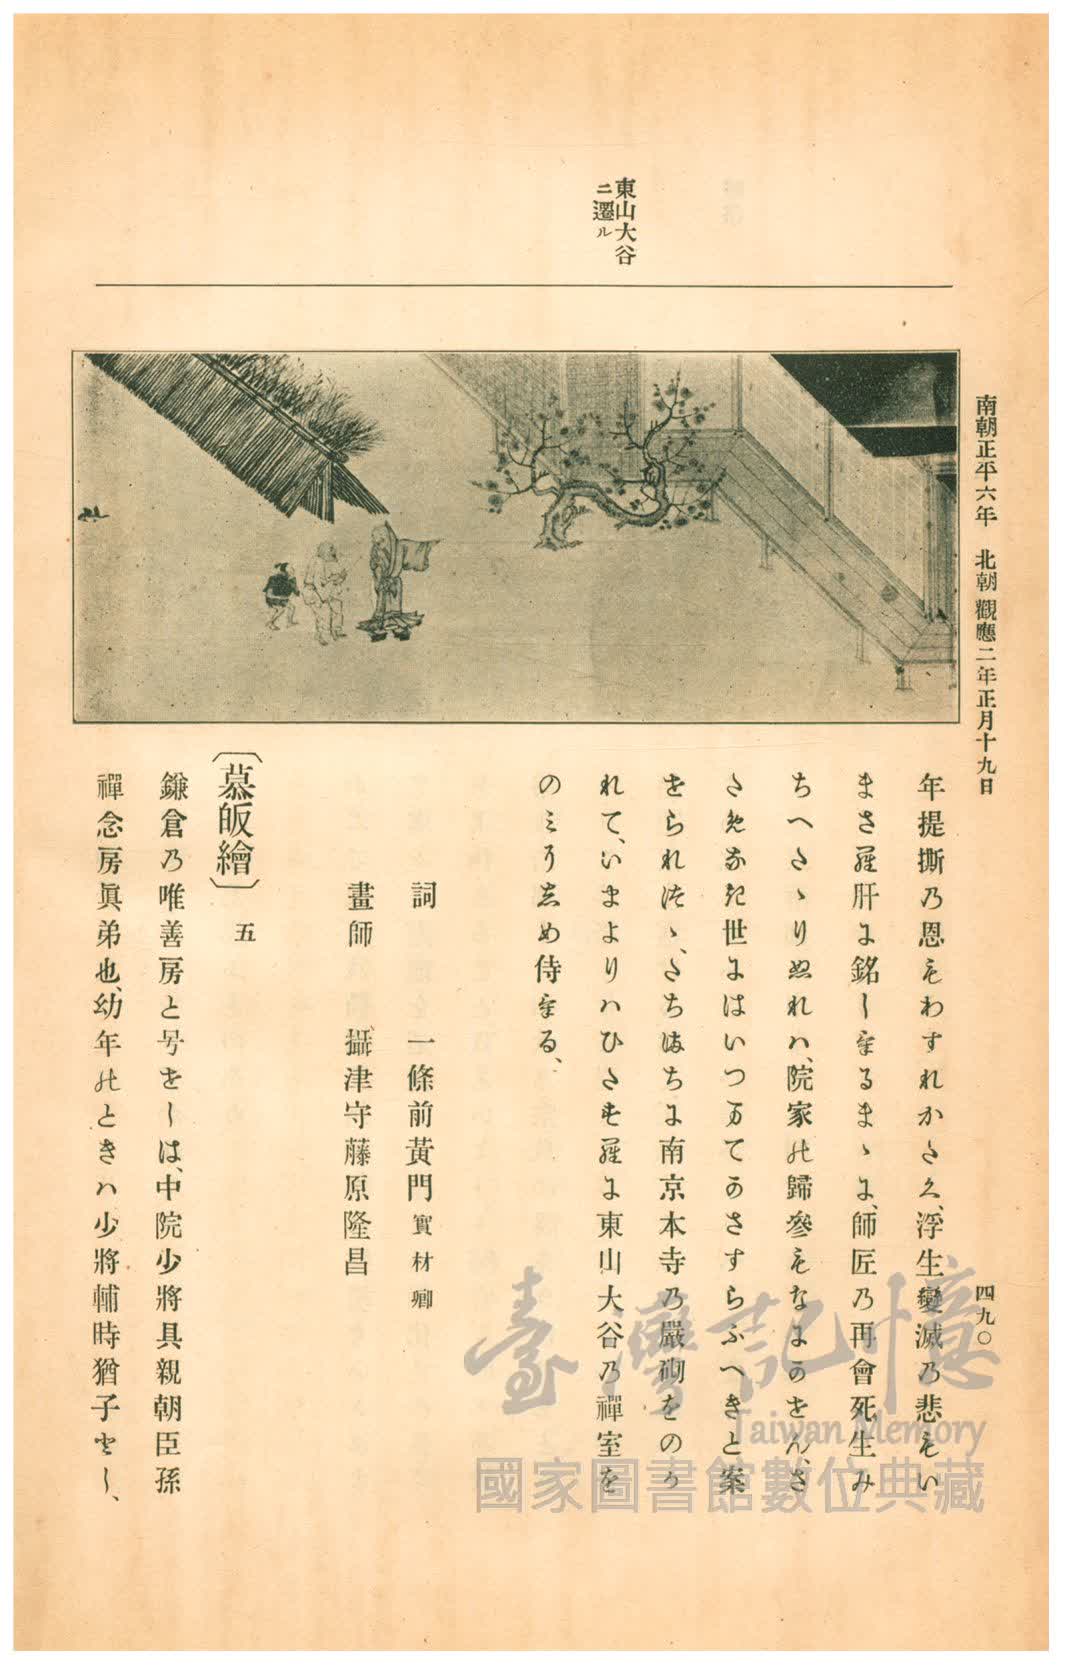 南朝正平六年 北朝觀應二年正月十九日
四九〇
東山大谷
ニ遷ル
年提撕乃恩もわすれかたく、浮生變滅乃悲もい
まさら肝に銘しけるまゝに、師匠乃再會死生み
ちへたゝりぬれハ、院家の歸參もなにかせん、さ
ためなき世にはいつまてかさすらふへきと案
せられつゝ、たちまちに南京本寺乃嚴砌をのか
れて、いまよりハひたすらに東山大谷乃禪室を
のミりしめ侍ける、
詞 一條前黃門實材卿
畫師 攝津守藤原隆昌
〔慕皈繪〕 五
鎌倉乃唯善房と号せしは、中院少將具親朝臣孫
禪念房眞弟也、幼年のときハ少將輔時猶子とし、
臺灣記憶
Taiwan Memory
國家圖書館數位典藏